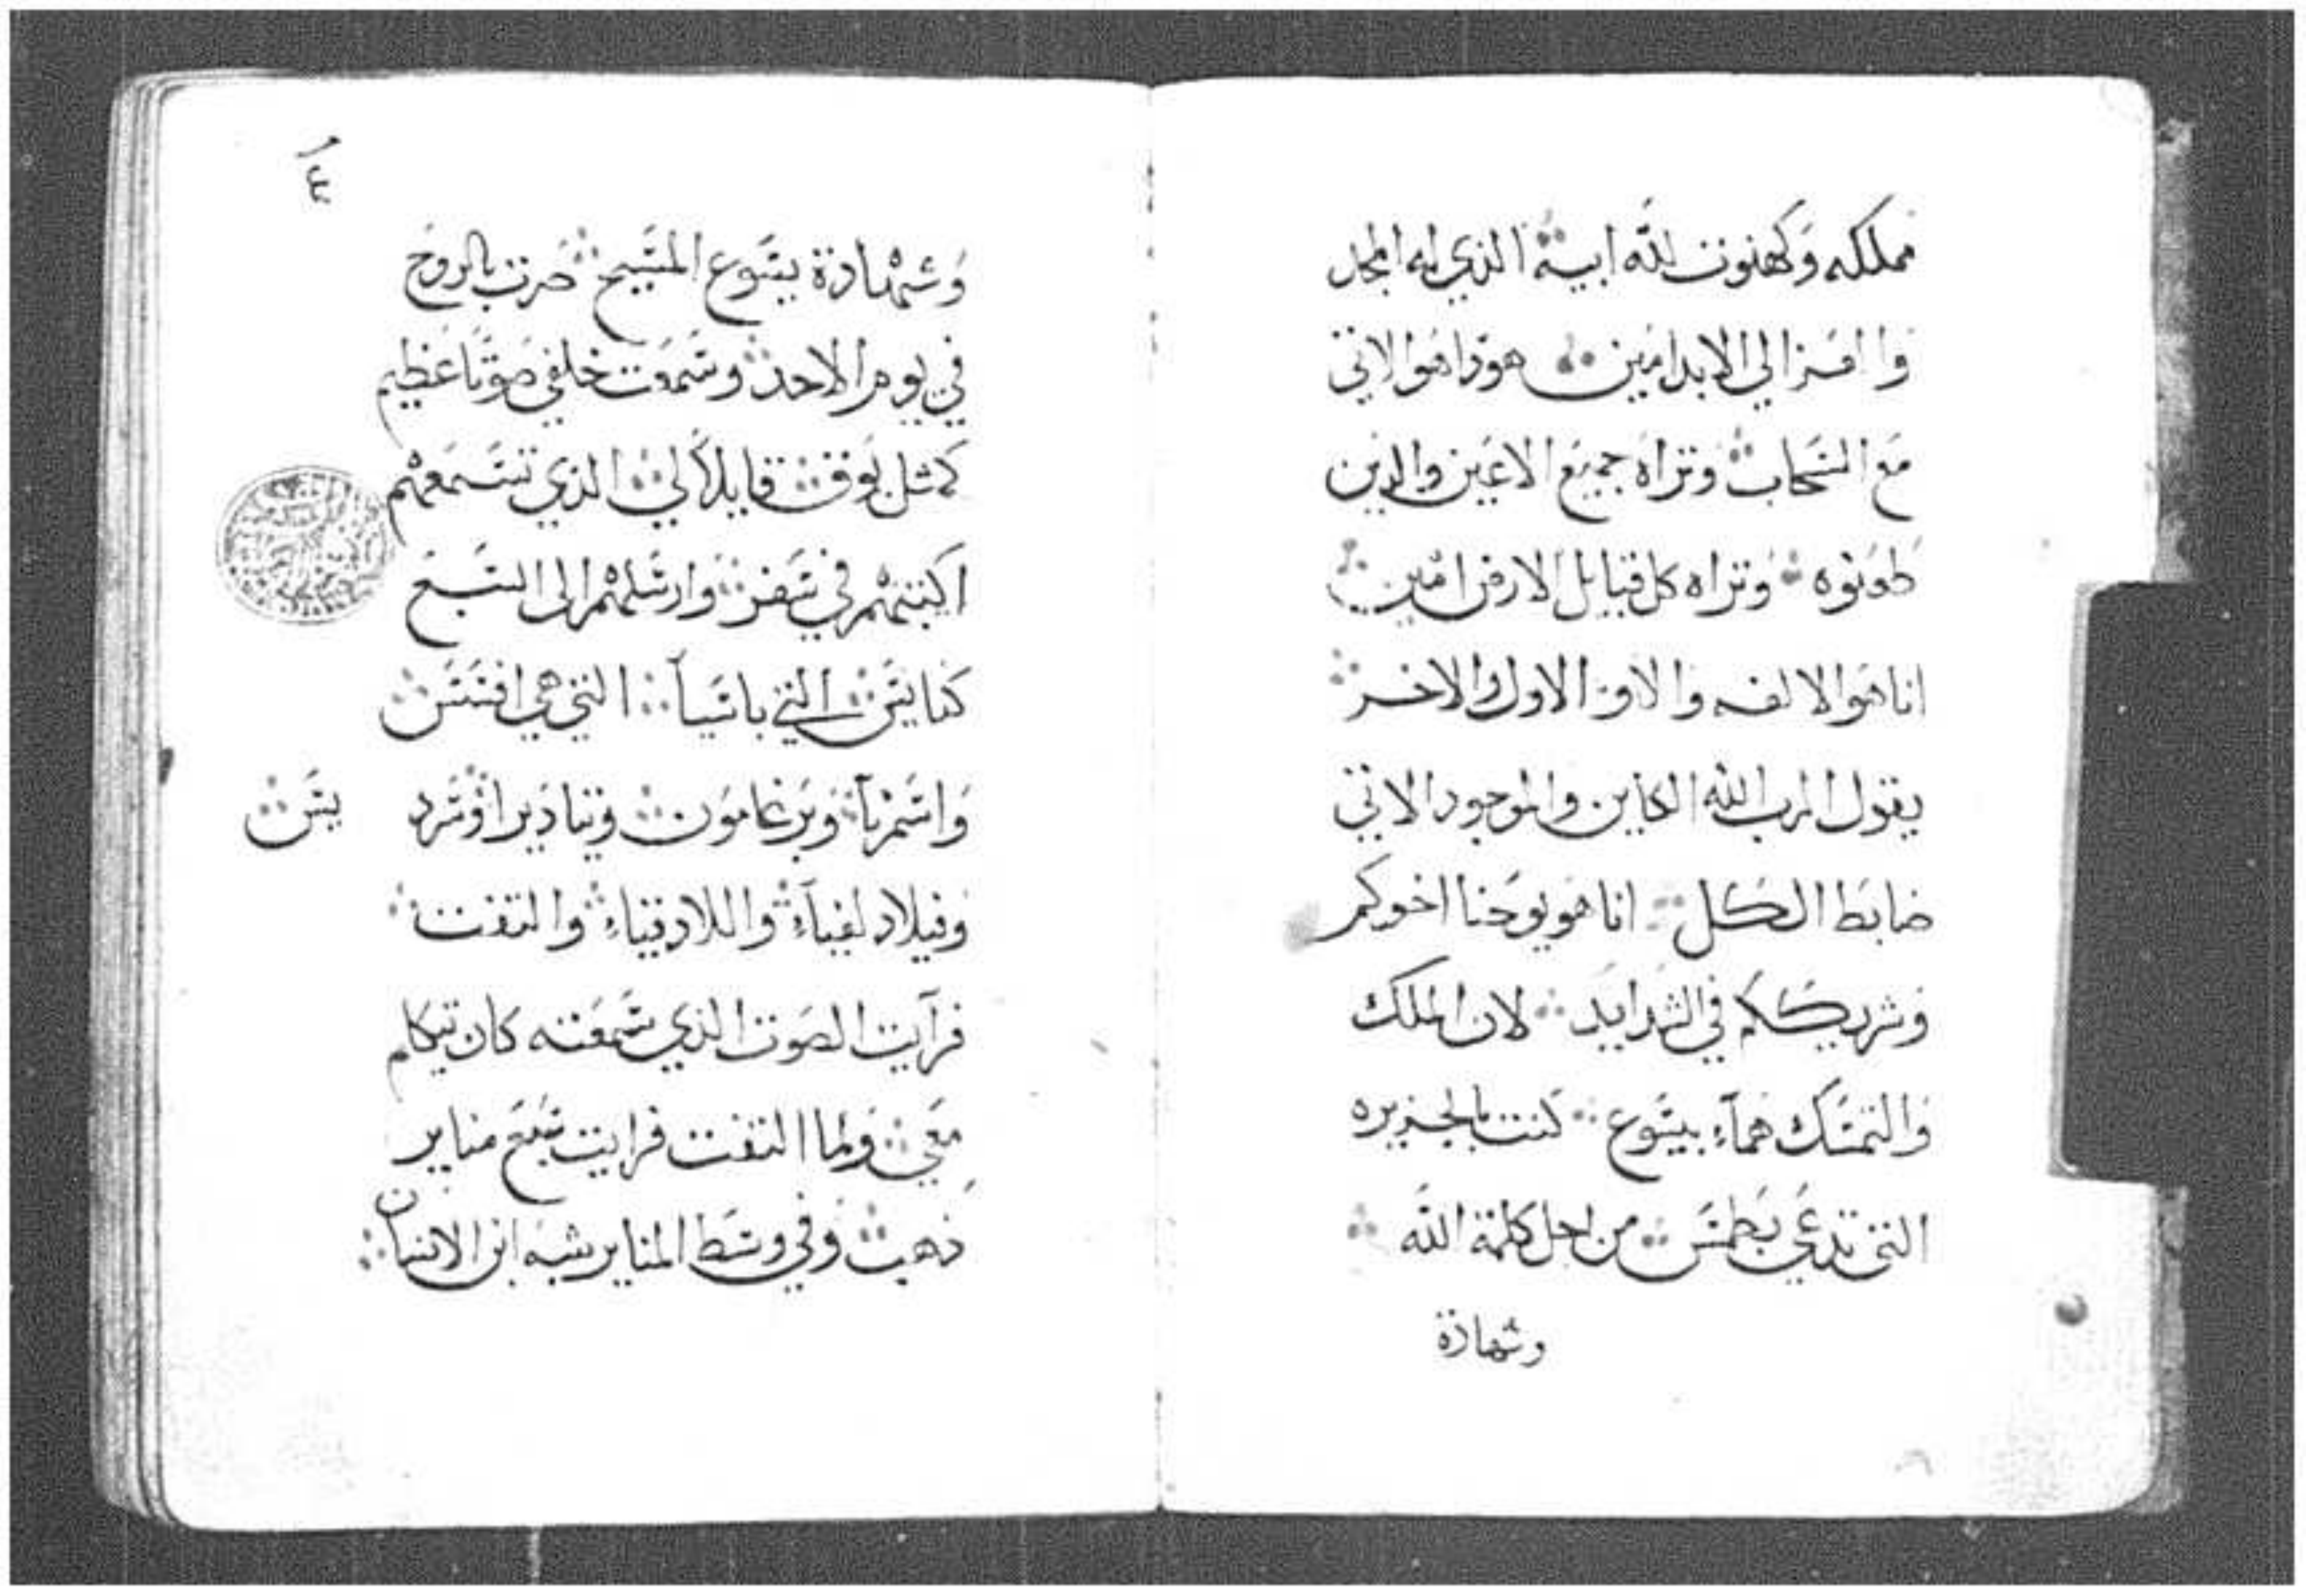 مملكه وكهنوت لله ابيه الذي له المجد
والعز الي الابد امين هوذا هوا لاتي
مع السحاب وتراه جميع الاعين والدين
طعنوه وتراه كل قبايل الارض امين
انا هوا لالفه والاو الاول والاخر
يقول الرب الله الكاين والموجود الاتي
ضابط الكل انا هو يوحنا اخوكم
وشريككم في الشدايد لان الملك
والتمسك هماء بيسوع كنت بالجزيره
التي تدعي بطمس من اجل كلمة الله
وشهادة
٤
وشهادة يسوع المسيح صرت بالروح
في يوم الاحد وسمعت خلفي صوتا عظيم
كمثل بوق قايلا لي الذي تسمعهم
اكتبهم في سفر وارسلهم الى السبع
كنايس التي باسيا التي هي افسس
واسمرنا وبرغامون وتياديرا وسرد
يس
وفيلادلفياء واللادقياء والتفت
فرآيت الصوت الذي سمعته كان يتكلم
معي ولما التفت فرايت سبع مناير
ذهب وفي وسط المناير شبه ابن الانسان